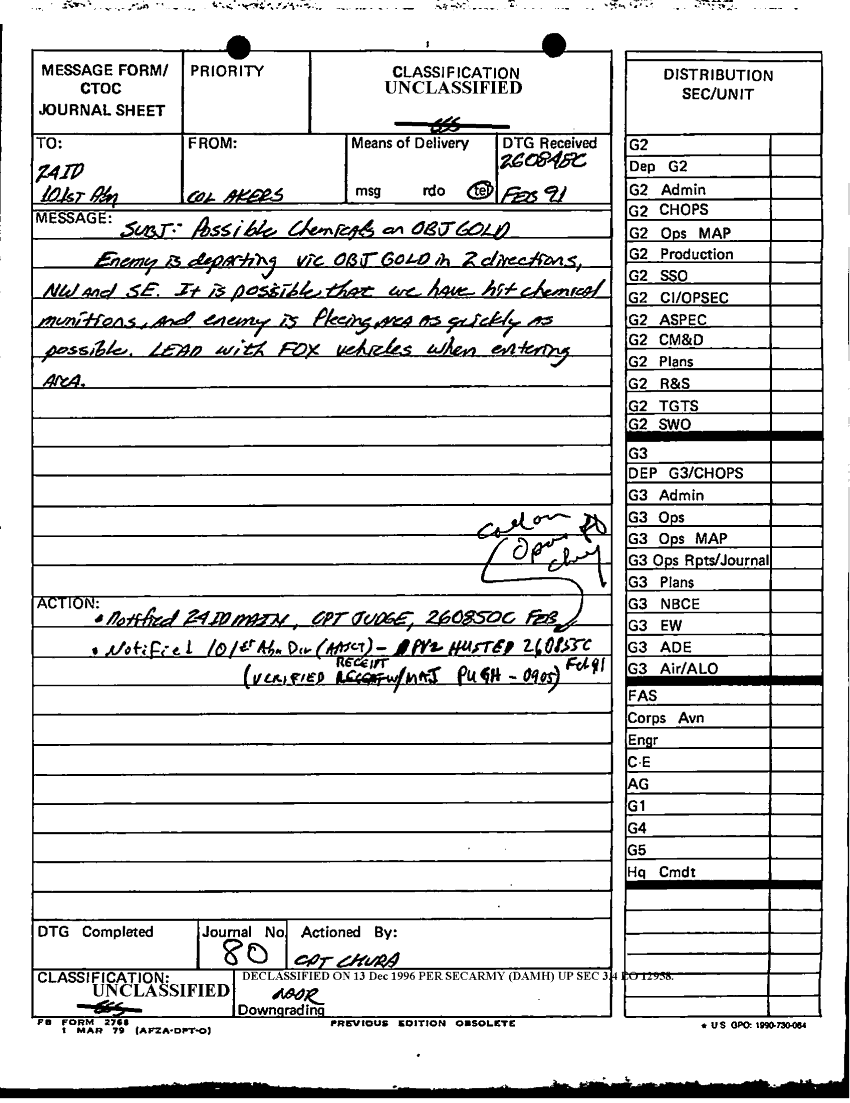 MESSAGE FORM/
CTOC
JOURNAL SHEET
PRIORITY
CLASSIFICATION
UNCLASSIFIED
TO:
24ID
101ST Abn
FROM:
COL AKERS
Means of Delivery
msg rdo tel
DTG Received
260848C
FEB 91
MESSAGE:
SUBJ: Possible Chemicals on OBJ GOLD
Enemy is departing vic OBJ GOLD in 2 directions,
NW and SE. It is possible that we have hit chemical
munitions, and enemy is fleeing area as quickly as
possible. LEAD with FOX vehicles when entering
Area.
ACTION:
• Notified 24 ID MAIN, CPT JUDGE, 260850C FEB
• Notified 101st Abn Div (AASLT) - PV2 HUSTED 260855C
Feb 91
RECEIPT
(VERIFIED w/MAJ PUGH - 0905)
DTG Completed
Journal No.
80
Actioned By:
CPT CHURA
CLASSIFICATION:
UNCLASSIFIED
DECLASSIFIED ON 13 Dec 1996 PER SECARMY (DAMH) UP SEC 3.4 EO 12958.
Downgrading
FB FORM 2768
1 MAR 79 (AFZA-DPT-O)
PREVIOUS EDITION OBSOLETE
DISTRIBUTION
SEC/UNIT
G2
Dep G2
G2 Admin
G2 CHOPS
G2 Ops MAP
G2 Production
G2 SSO
G2 CI/OPSEC
G2 ASPEC
G2 CM&D
G2 Plans
G2 R&S
G2 TGTS
G2 SWO
G3
DEP G3/CHOPS
G3 Admin
G3 Ops
G3 Ops MAP
G3 Ops Rpts/Journal
G3 Plans
G3 NBCE
G3 EW
G3 ADE
G3 Air/ALO
FAS
Corps Avn
Engr
C-E
AG
G1
G4
G5
Hq Cmdt
★ US GPO: 1990-730-064